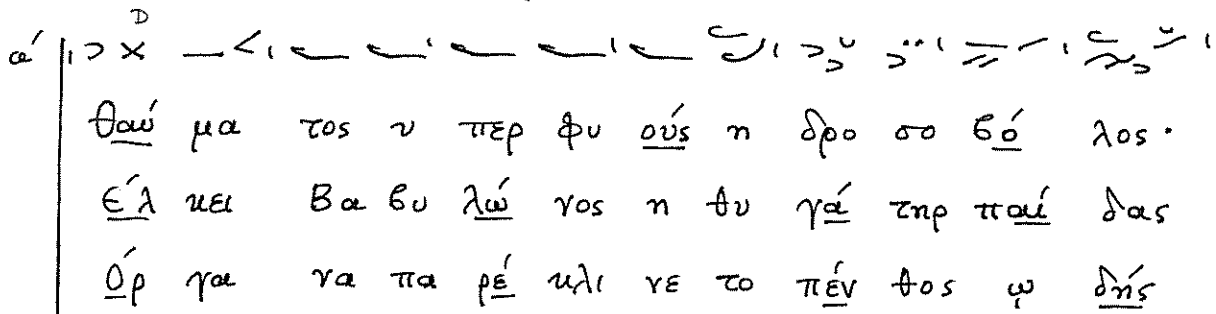 D
α´
Θαύ μα τος υ περ φυ ούς η δρο σο βό λος ·
Έλ κει Βα βυ λώ νος η θυ γά τηρ παί δας
Όρ γα να πα ρέ κλι νε το πέν θος ῳ δής